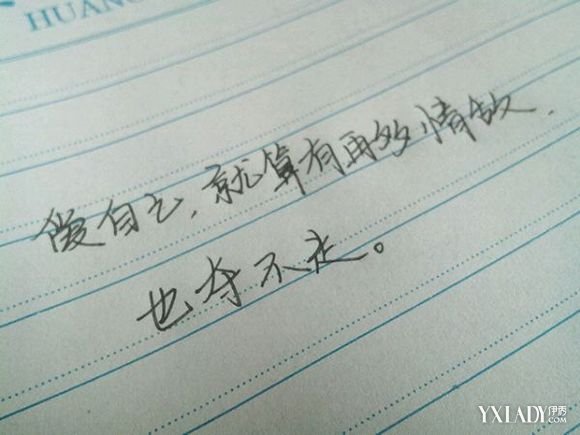 HUANG
爱自己,就算有再多情敌,
也夺不走。
YXLADY伊秀